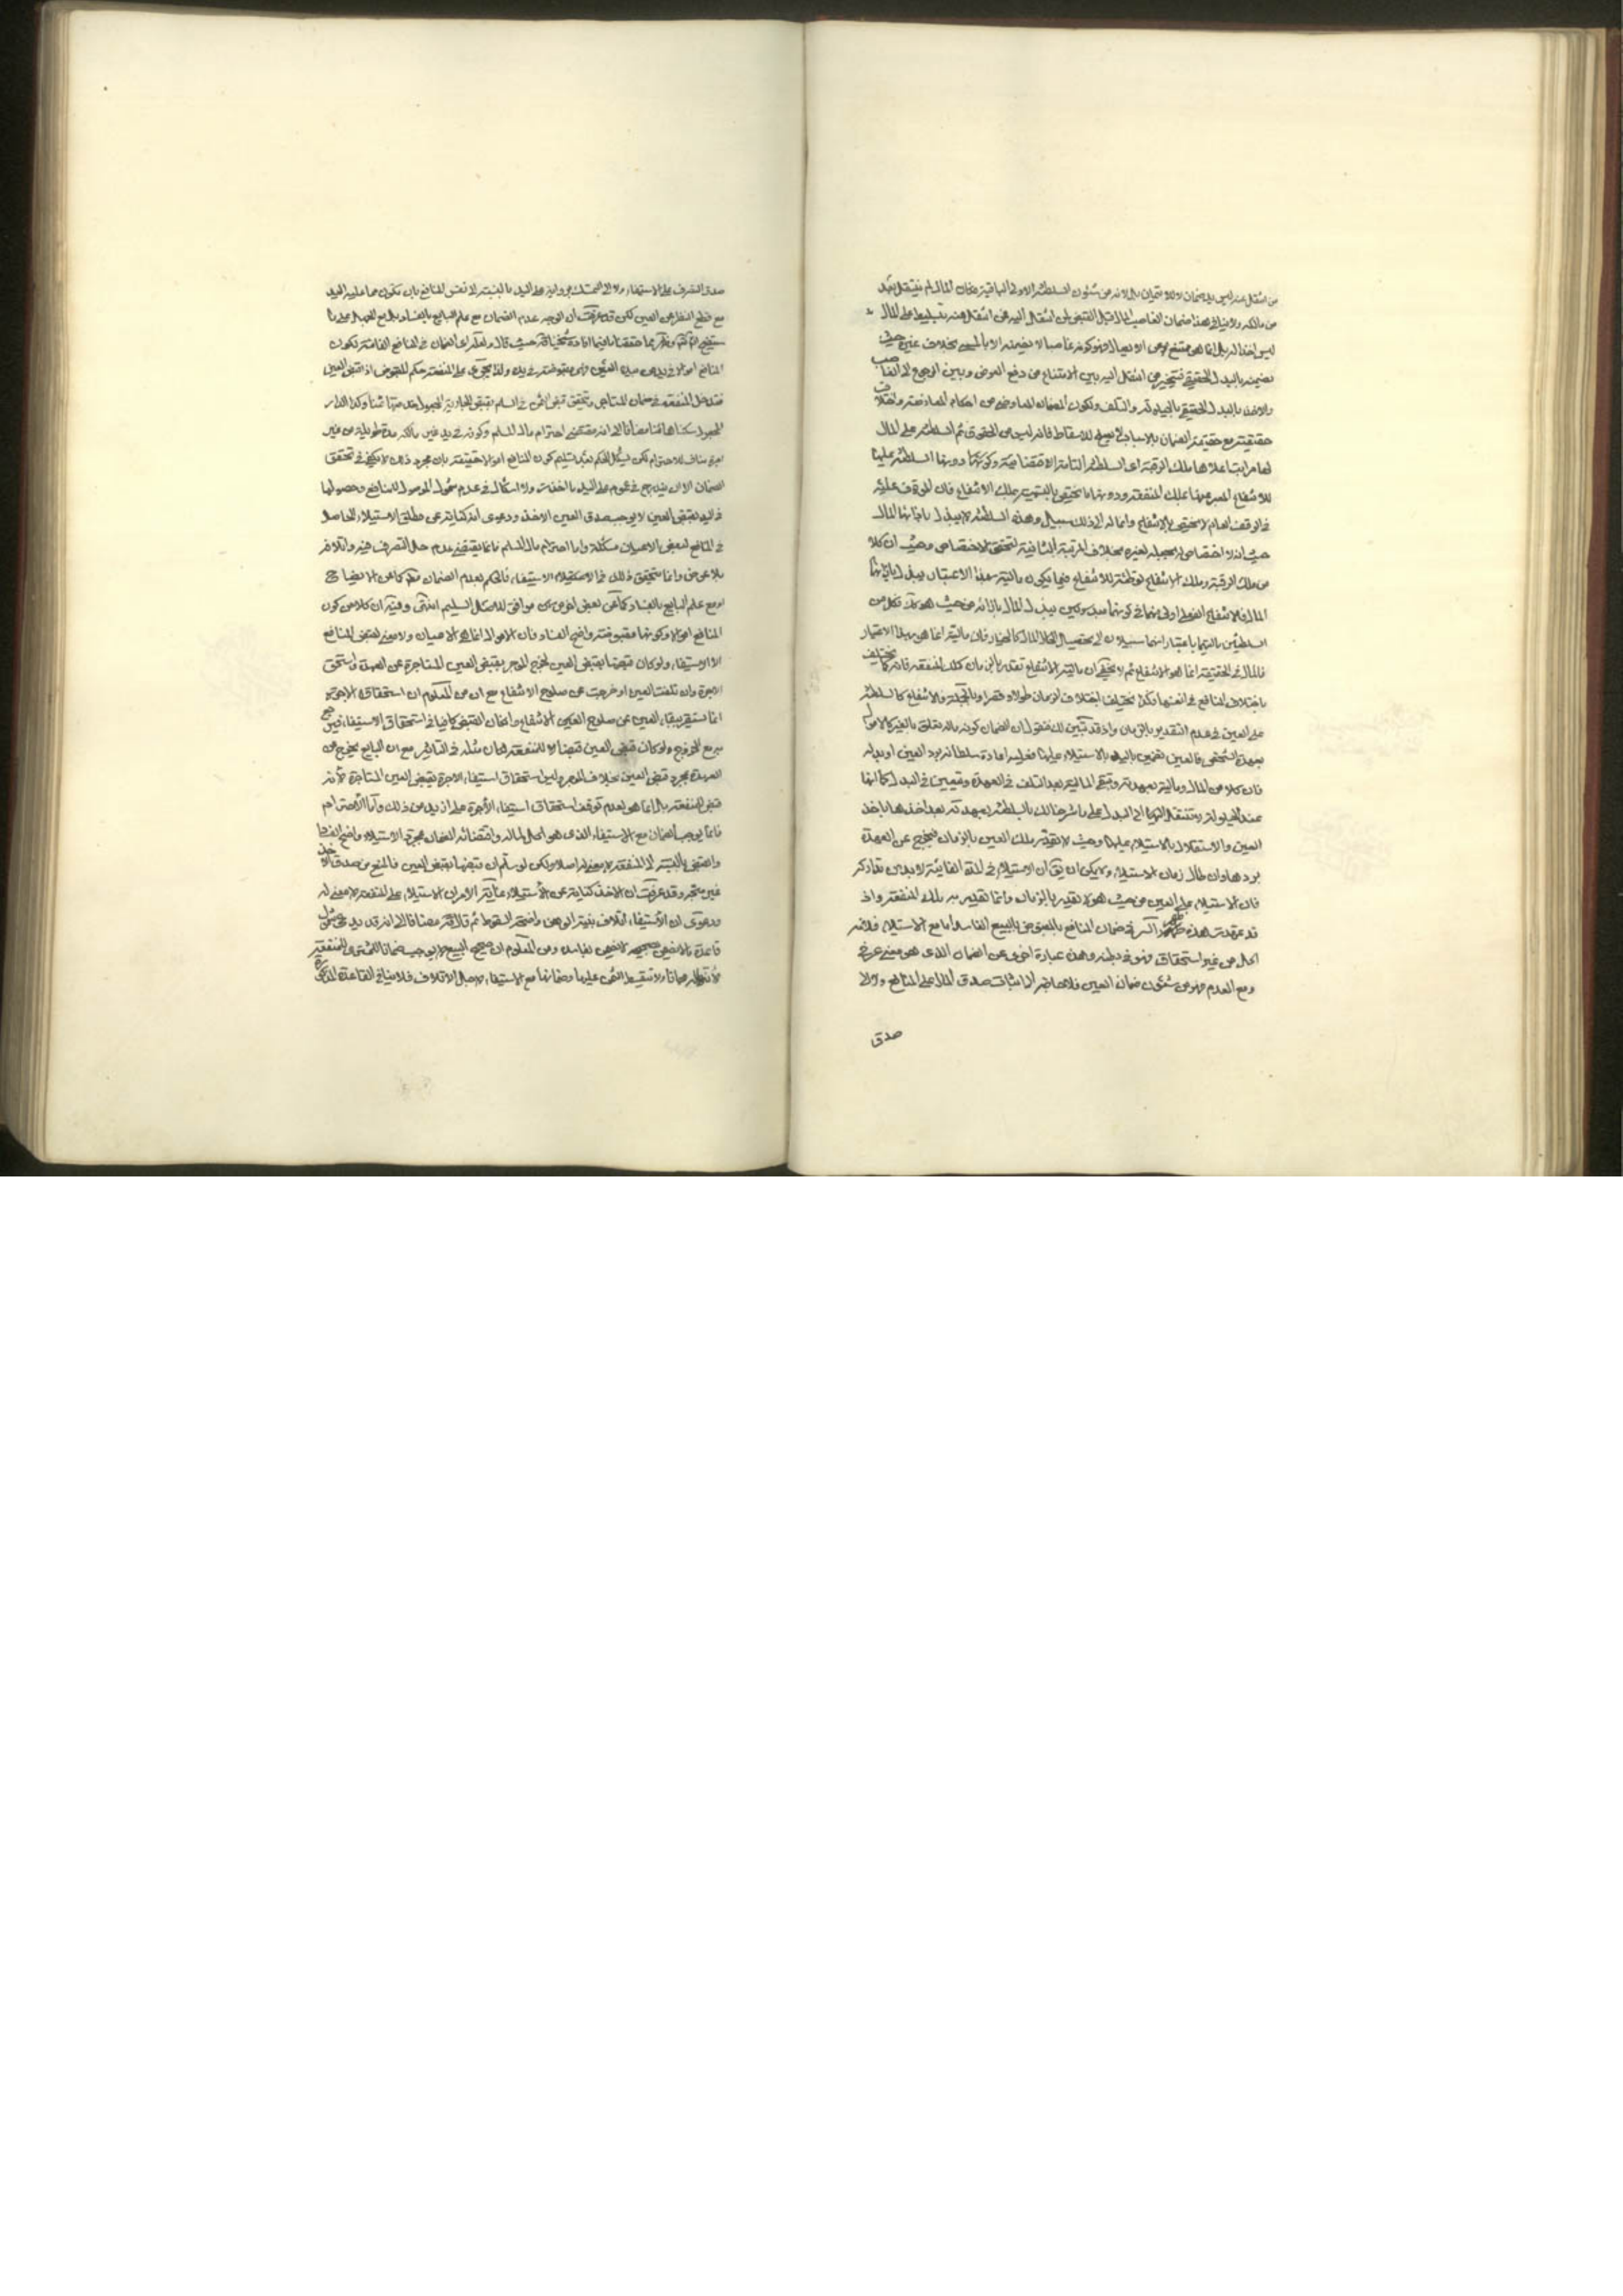 من انتقل عنه ليس يد ضمان ولا ائتمان بل لانه من شئون السلطنة الاولى الباقية فان المال لم ينتقل بعد
من مالكه ولا ينافي هذا ضمان الغاصب المال قبل القبض لمن انتقل اليه عمن انتقل عنه بتسليط على المال
ليس اخذا له بل انما هو ممتنع عن الايصال فهو كونه غاصبا لا يضمنه الا بالمسمى بخلاف غيره حيث
يضمنه بالبدل الحقيقي فيتخير من انتقل اليه بين الامتناع من دفع العوض وبين الرجوع الى الغاصب
والاخذ بالبدل الحقيقي بالحيلولة والتلف ولكون الضمان المعاوضي من احكام المعاوضة واختلاف
حقيقته مع حقيقة الضمان بالاسباب لا يصلح للاسقاط فانه ليس من الحقوق ثم السلطنة على المال
لها مراتب اعلاها ملك الرقبة اى السلطنة التامة ودونها السلطنة عليها
للانتفاع المعبر عنها بملك المنفعة ودونها ما يختص بالتسمية بملك الانتفاع فان الموقوف عليه
في الوقف العام لا يختص بالانتفاع وانما له الى ذلك سبيل وهذه السلطنة لا يبذل بازائها المال
حيث انه لا اختصاص بخلاف المرتبة الثانية لتحقق الاختصاص وحيث ان كلا
من ملك الرقبة وملك الانتفاع توطئة للانتفاع فيما يكون ماليته بهذا الاعتبار يبذل بازائها
المال فالانتفاع الفعلي اولى منهما في كونهما يبذل المال بازائه من حيث هو
السلطنتين ماليتها باعتبار انهما سبيلان الى تحصيل المال كالخيار فان ماليته انما هو بهذا الاعتبار
فالمال في الحقيقة انما هو الانتفاع ثم لا يخفى ان مالية الانتفاع تقدر بالزمان كملك المنفعة فانه كما يختلف
باختلاف المنافع في انفسها كذا يختلف باختلاف الزمان طولا وقصرا وبالجملة فالانتفاع كالسلطنة
على العين في عدم التقدير بالزمان واذ قد تبين لك فنقول ان الضمان كونه مال يتعلق بالغير كالاموال
بعهدة الشخص فالعين تضمن باليد بالاستيلاء عليها فعليه اعادة سلطانه برد العين او بدله
فان كلا من المال وماليته بعهدته وتبقى المالية بعد التلف في العهدة ويتعين في البدل كما انها
عند الحيلولة تنتقل الى البدل على ما شرحنا لك بالسلطنة بعهدته بعد اخذها باخذ
العين والاستقلال بالاستيلاء عليها وحيث لا تقدير ملك العين بالزمان فيخرج عن العهدة
بردها وان طال زمان الاستيلاء ولا يمكن ان يق ان الاستيلاء في المدة الفائتة لا بد من تداركه
فان الاستيلاء على العين من حيث هو لا تقدير بالزمان وانما تقدير به ملك المنفعة واذ
قد تمهدت هذه السر في ضمان المنافع بالمقبوض بالبيع الفاسد اما مع الاستيفاء فلانه
اكل من غير استحقاق وهذه عبارة اخرى عن الضمان الذي هو معنى عرفي
ومع العدم فهو من شئون ضمان العين فلا حاجة الى اثبات صدق المال على المنافع ولا الى
صدق
صدق التصرف على الاستيفاء ولا الى التمسك بعموم على اليد بالنسبة الى نفس المنافع بان تكون مما عليه اليد
مع قطع النظر عن العين لكن قد عرفت ان الوجه عدم الضمان مع علم البايع بالفساد بل مع الجهل على ما
حيث قال ولعله اى الضمان في المنافع الفائتة لكون
المنافع اموالا في يد من بيده العين فهي مقبوضة في يده ولذا يجري على المنفعة حكم المقبوض اذا قبض العين
فتدخل المنفعة في ضمان المستاجر ويتحقق قبض الثمن في السلم بقبض الجارية المجعول خدمتها ثمنا وكذا الدار
المجعول سكناها ثمنا مضافا الى انه مقتضى احترام مال المسلم وكونه في يد غير مالكه مدة طويلة من غير
اجرة مناف للاحترام لكن يشكل الحكم بعد تسليم كون المنافع اموالا حقيقة بان مجرد ذلك لا يكفي في تحقق
الضمان الا ان يندرج في عموم على اليد ما اخذت ولا اشكال في عدم شمول الموصول للمنافع وحصولها
في اليد بقبض العين لا يوجب صدق العين الاخذ ودعوى انه كناية عن مطلق الاستيلاء الحاصل
في المنافع بقبض الاعيان مشكلة واما احترام مال المسلم فانما يقتضي عدم حل التصرف فيه واتلافه
بلا عوض وانما يتحقق ذلك في الاستيفاء فالحكم بعدم الضمان مطلقا كما عن الايضاح
او مع علم البايع بالفساد كما عن بعض اخر موافق للاصل السليم انتهى وفيه ان كلا من كون
المنافع اموالا وكونها مقبوضة واضح الفساد فان الاموال انما هو الاعيان ولا معنى لقبض المنافع
الا الاستيفاء ولو كان قبضها بقبض العين لخرج الموجر بقبض العين المستاجرة عن العهدة واستحق
الاجرة وان تلفت العين او خرجت عن صلوح الانتفاع مع ان من المعلوم ان استحقاقه الاجرة
انما يستقر ببقاء العين على صلوح العين الانتفاع وان كان القبض كافيا في استحقاق الاستيفاء فيرجع
مع الخروج ولو كان قبض العين قبضا للمنفعة لكان مثله في التاثير مع ان البايع يخرج عن
العهدة بمجرد قبض العين بخلاف الموجر وليس استحقاق استيفاء الاجرة بقبض العين المستاجرة لانه
قبض المنفعة بل انما هو لعدم توقف استحقاق استيفاء الأجرة على ازيد من ذلك وأما الاحترام
فانما يوجب الضمان مع الاستيفاء الذي هو اكل لماله واقتضائه الضمان بمجرد الاستيلاء واضح الفساد
والقبض بالنسبة الى المنفعة لا معنى له اصلا ولكن لو سلم ان قبضها بقبض العين فالمنع من صدق الاخذ
غير متجه وقد عرفت ان الاخذ كناية عن الاستيلاء غاية الامر ان الاستيلاء على المنفعة لا معنى له
ودعوى ان الاستيفاء اتلاف بينة الوهن واضحة السقوط ثم قال مضافا الى انه قد يدعى شمول
قاعدة ما لا يضمن بصحيحه لا يضمن بفاسده ومن المعلوم ان صحيح البيع لا يوجب ضمانا للمشتري للمنفعة
لأنها له مجانا ولا تقسيط الثمن عليها وضمانها مع الاستيفاء لاجل الاتلاف فلا ينافي القاعدة المذكورة